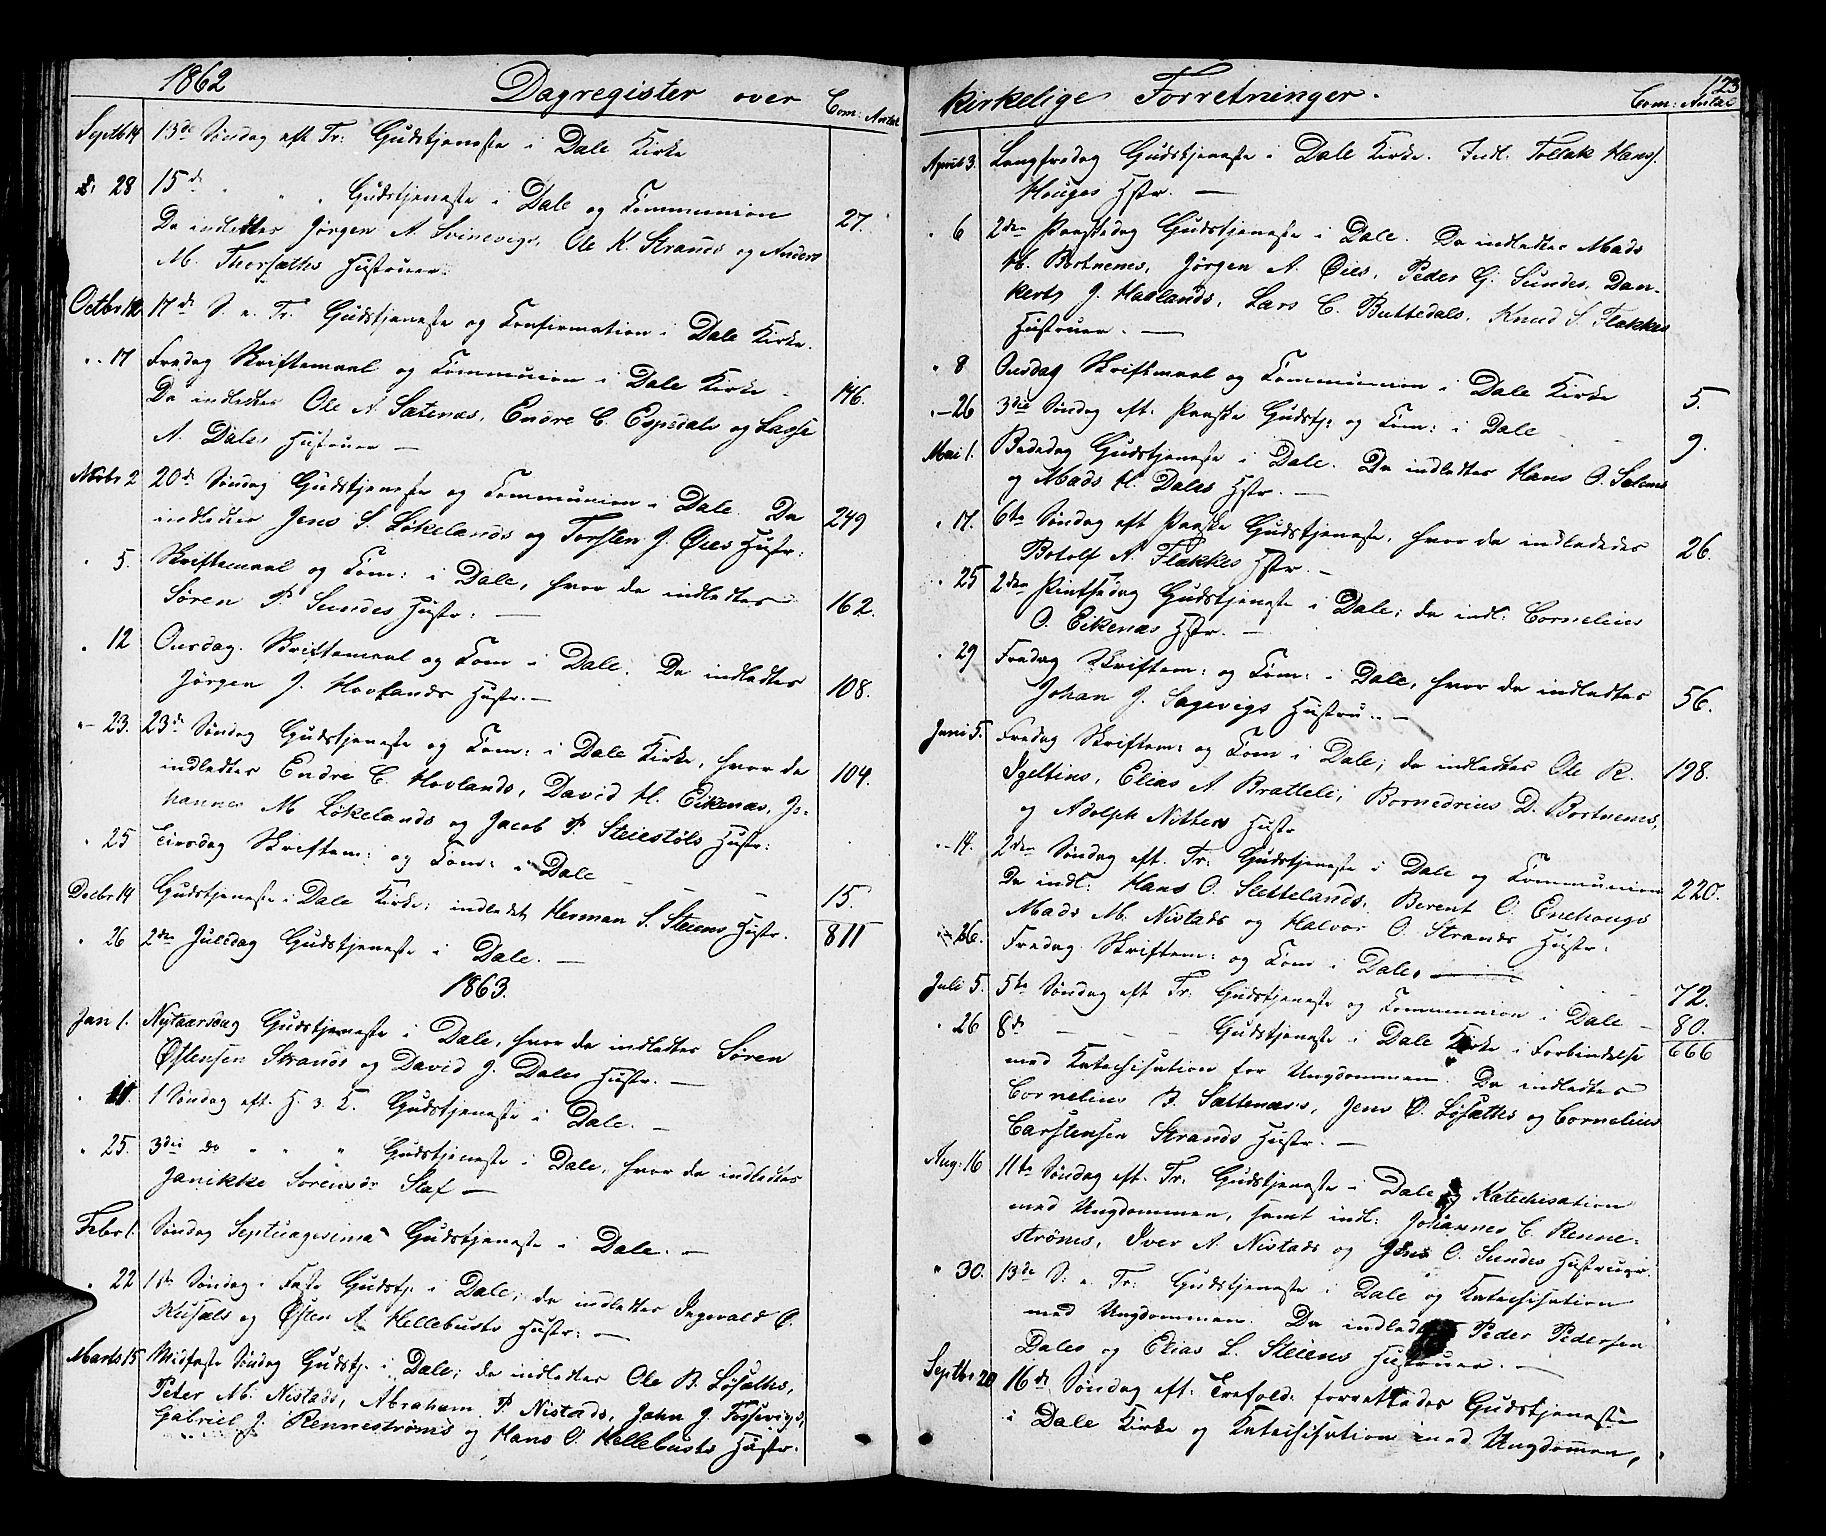 1862 Dagregister over Com: Antal
Septb 14 13de Søndag eft Tr: Gudstjeneste i Dale Kirke
28 15de " " Gudstjeneste i Dale og Communion 27.
Da indledtes Jørgen A. Svinevigs, Ole K. Strands og Anders
M. Thorsæths Hustruer.
Octbr 12 17de S. e. Tr. Gudstjeneste og Confirmation i Dale Kirke.
" 17 Fredag Skriftemaal og Communion i Dale Kirke - 146.
Da indledtes Ole N. Sætenæs, Endre C. Espedals og Lasse
A. Dales Hustruer —
Novbr 2 20de Søndag Gudstjeneste og Communion i Dale. Da 249
indledtes Jens S. Løkelands og Torsten J. Øies Hustr:
" 5. Skriftemaal og Com: i Dale, hvor da indledtes 162.
Søren P. Sundes Hustr: —
" 12 Onsdag. Skriftemaal og Com i Dale. Da indledtes 108.
Jørgen J. Hovlands Hustr. —
" 23. 23de Søndag Gudstjeneste og Com: i Dale Kirke, hvor da 104.
indledtes Endre C. Hovlands, David H. Eikenæs, Jo-
hannes M Løkelands og Jacob P. Steiestøls Hustr:
" 25 Tirsdag Skriftem: og Com: i Dale — 15.
Decbr 14 Gudstjeneste i Dale Kirke; indledet Herman S. Steiens Hustr. 811
" 26 2den Juledag Gudstjeneste i Dale. —
1863.
Jan 1. Nytaarsdag Gudstjeneste i Dale, hvor da indledtes Søren
Østensen Strands og David J. Dales Hustr. —
" 11. 1 Søndag eft. H. 3 K. Gudstjeneste i Dale. —
" 25. 3die do " " " Gudstjeneste i Dale, hvor da indledtes
Janikke Sørensdr Staf —
Febr 1. Søndag Septuagesima Gudstjeneste i Dale. —
" 22 1ste Søndag i Faste Gudstj. i Dale; da indledtes Ingvald O.
og Østen A. Hellebusts Hustr: —
Marts 15 Midfaste Søndag Gudstj. i Dale; da indledtes Ole B. Løsæths,
Peter M. Nistads, Abraham P. Nistads, John J. Fossevigs,
Gabriel J. Rennestrøms og Hans O. Hellebusts Hustr.
kirkelige Forretninger. Com: Antal 123
April 3. Langfredag Gudstjeneste i Dale Kirke. Indl. Tollak Hanss.
Houges Hstr. —
" 6 2den Paaskedag Gudstjeneste i Dale. Da indledtes Mads
H. Bortnenes, Jørgen A. Øies, Peder G. Sundes, Dan-
kerts J. Havlands, Lars C. Buttedals, Knud S. Flakkes
Hustruer. —
" 8 Onsdag Skriftemaal og Communion i Dale Kirke 5.
" 26 3die Søndag eft. Paaske Gudstj: og Com: i Dale 9.
Mai 1. Bededag Gudstjeneste i Dale. Da indledtes Hans O. Sætenes
og Mads H. Dales Hstr. —
" 17. 6te Søndag eft Paaske Gudstjeneste, hvor da indledtes 26.
Botolf N. Flakkes Hstr. —
" 25 2den Pintsedag Gudstjeneste i Dale; da indl: Cornelius
O. Eikenæs Hstr. —
" 29 Fredag Skriftem: og Com: i Dale, hvor da indledtes 56.
Johan J. Sagevigs Hustru. —
Juni 5. Fredag Skriftem: og Com i Dale; da indledtes Ole R. 198.
Igeltins, Elias A Bratteli, Bornedrius D. Bortnenes,
og Adolph Nitters Hustr
" 14. 2den Søndag eft. Tr: Gudstjeneste i Dale og Communion 220.
Da indl: Hans O. Slettelands, Berent O. Enehougs
Mads M. Nistads og Halvor O. Strands Hustr:
" 26. Fredag Skriftem: og Com i Dale. — 72.
Juli 5. 5te Søndag eft Tr: Gudstjeneste og Communion i Dale — 80.
" 26 8de — — — Gudstjeneste i Dale Kirke i Forbindelse 666
med Katechisation for Ungdommen. Da indledtes
Cornelius B. Sættenæs, Jens O. Løsæths og Cornelius
Carstensen Strands Hustr. —
Aug: 16 11te Søndag eft. Tr: Gudstjeneste i Dale og Katechisation
med Ungdommen, samt indl: Johannes C. Renne-
strøms, Iver A. Nistads og Jens O. Sundes Hustruer.
" 30. 13de S. e. Tr: Gudstjeneste i Dale og Katechisation
med Ungdommen. Da indledtes Peder Pedersen
Dales og Elias L. Steiens Hustruer. —
Septbr 20 16de Søndag eft: Trefold: forrettedes Gudstjeneste
i Dale Kirke og Katechisation med Ungdommen,